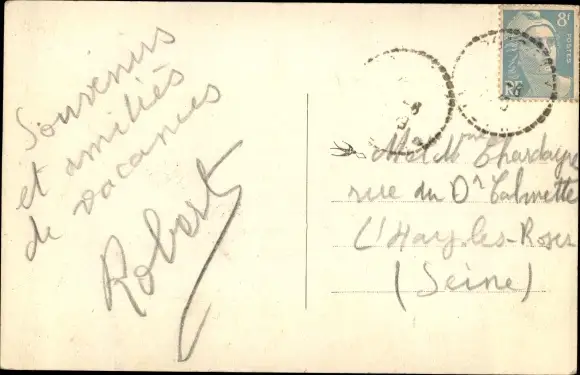 Souvenirs
et amitiés
de vacances
Robert
8F
POSTES
RF
M et Mme Chardayre
rue du Dr Calmette
L'Hay-les-Roses
(Seine)